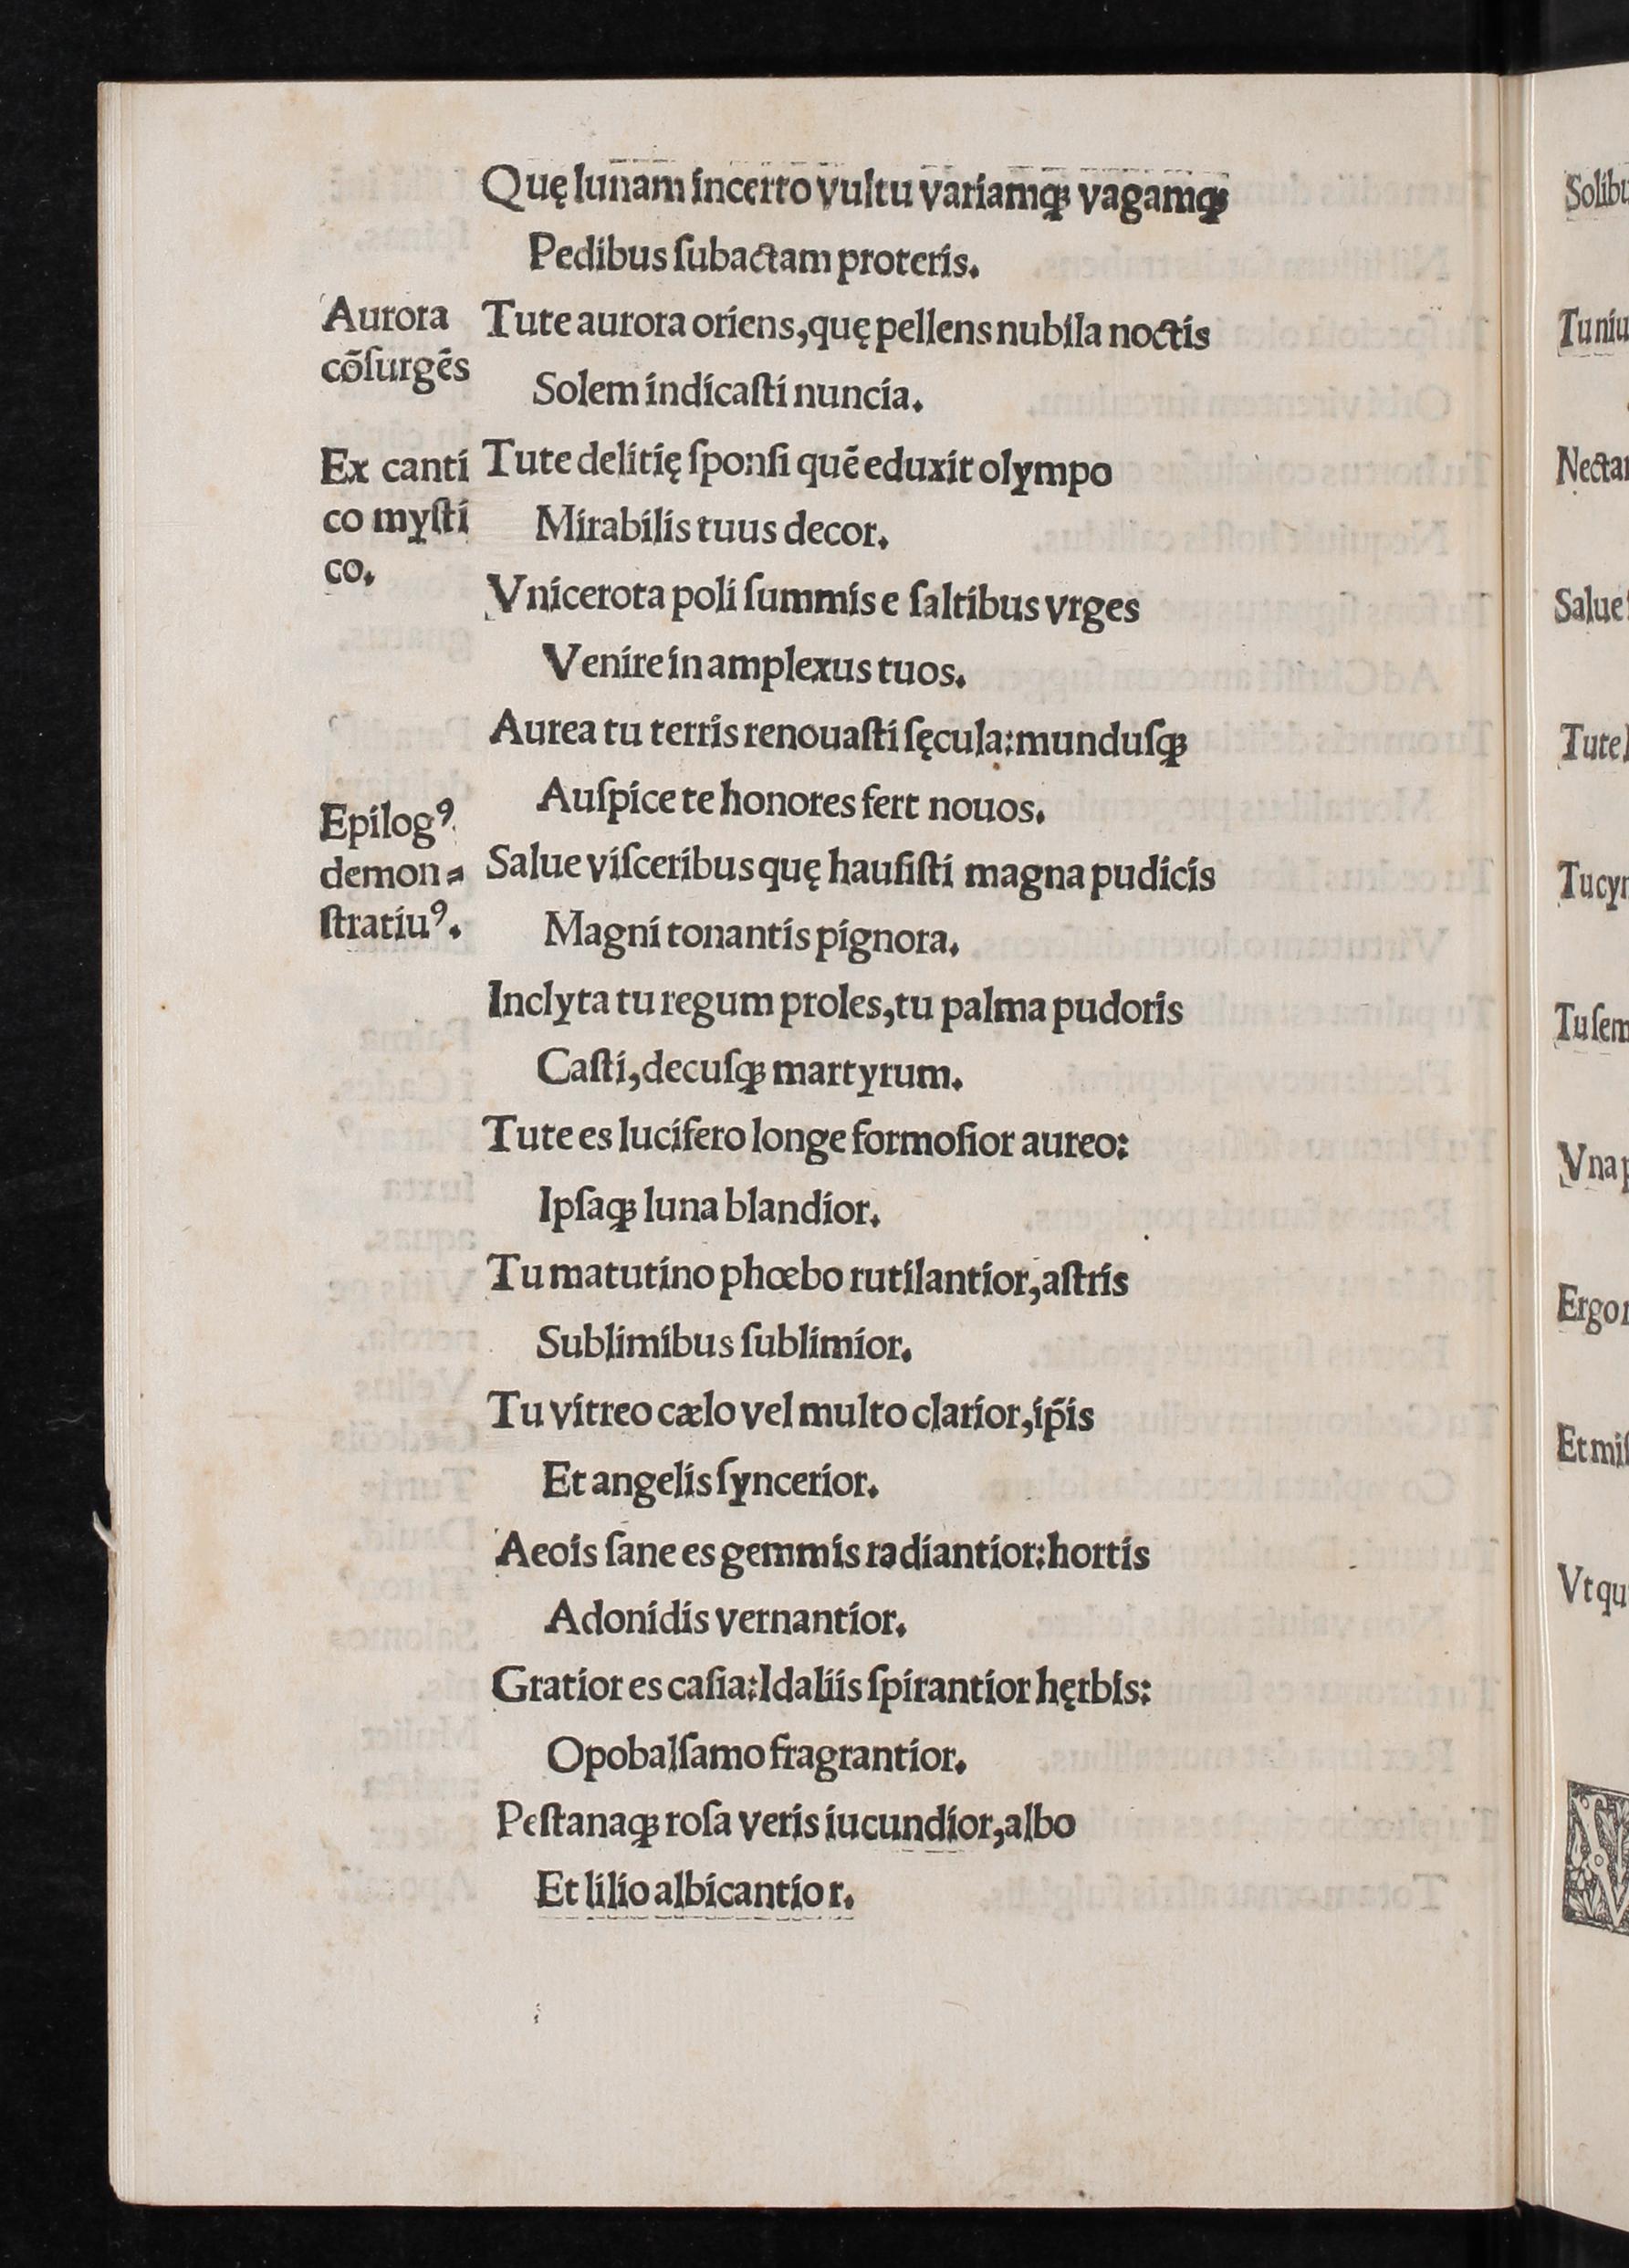 Quę lunam incerto vultu variamqꝫ vagamqꝫ
Pedibus ſubactam proteris.
Aurora
cõſurgẽs
Tute aurora oriens, quę pellens nubila noctis
Solem indicaſti nuncia.
Ex canti
co myſti
co.
Tute delitię ſponſi quẽ eduxit olympo
Mirabilis tuus decor.
Vnicerota poli ſummis e ſaltibus vrges
Venire in amplexus tuos.
Aurea tu terris renouaſti ſęcula: munduſqꝫ
Auſpice te honores fert nouos.
Epilogꝰ
demon⸗
ſtratiuꝰ.
Salue viſceribus quę hauſiſti magna pudicis
Magni tonantis pignora.
Inclyta tu regum proles, tu palma pudoris
Caſti, decuſqꝫ martyrum.
Tute es lucifero longe formoſior aureo:
Ipſaqꝫ luna blandior.
Tu matutino phœbo rutilantior, aſtris
Sublimibus ſublimior.
Tu vitreo cælo vel multo clarior, ip̃is
Et angelis ſyncerior.
Aeois ſane es gemmis radiantior: hortis
Adonidis vernantior.
Gratior es caſia: Idaliis ſpirantior hęrbis:
Opobalſamo fragrantior.
Peſtanaqꝫ roſa veris iucundior, albo
Et lilio albicantior.
Solibu
Tu niu
Nectar
Salue
Tute
Tu cyn
Tu ſem
Vna p
Ergo
Et miſ
Vt qu